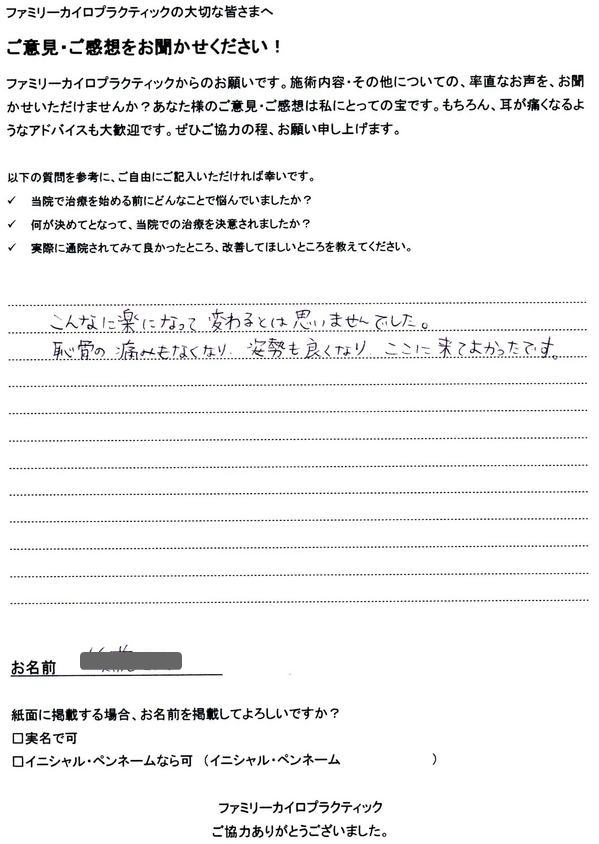 ファミリーカイロプラクティックの大切な皆さまへ
ご意見・ご感想をお聞かせください！
ファミリーカイロプラクティックからのお願いです。施術内容・その他についての、率直なお声を、お聞
かせいただけませんか？あなた様のご意見・ご感想は私にとっての宝です。もちろん、耳が痛くなるよ
うなアドバイスも大歓迎です。ぜひご協力の程、お願い申し上げます。
以下の質問を参考に、ご自由にご記入いただければ幸いです。
✓ 当院で治療を始める前にどんなことで悩んでいましたか？
✓ 何が決めてとなって、当院での治療を決意されましたか？
✓ 実際に通院されてみて良かったところ、改善してほしいところを教えてください。
こんなに楽になって変わるとは思いませんでした。
恥骨の痛みもなくなり、姿勢も良くなり、ここに来てよかったです。
お名前
紙面に掲載する場合、お名前を掲載してよろしいですか？
□実名で可
□イニシャル・ペンネームなら可 （イニシャル・ペンネーム ）
ファミリーカイロプラクティック
ご協力ありがとうございました。